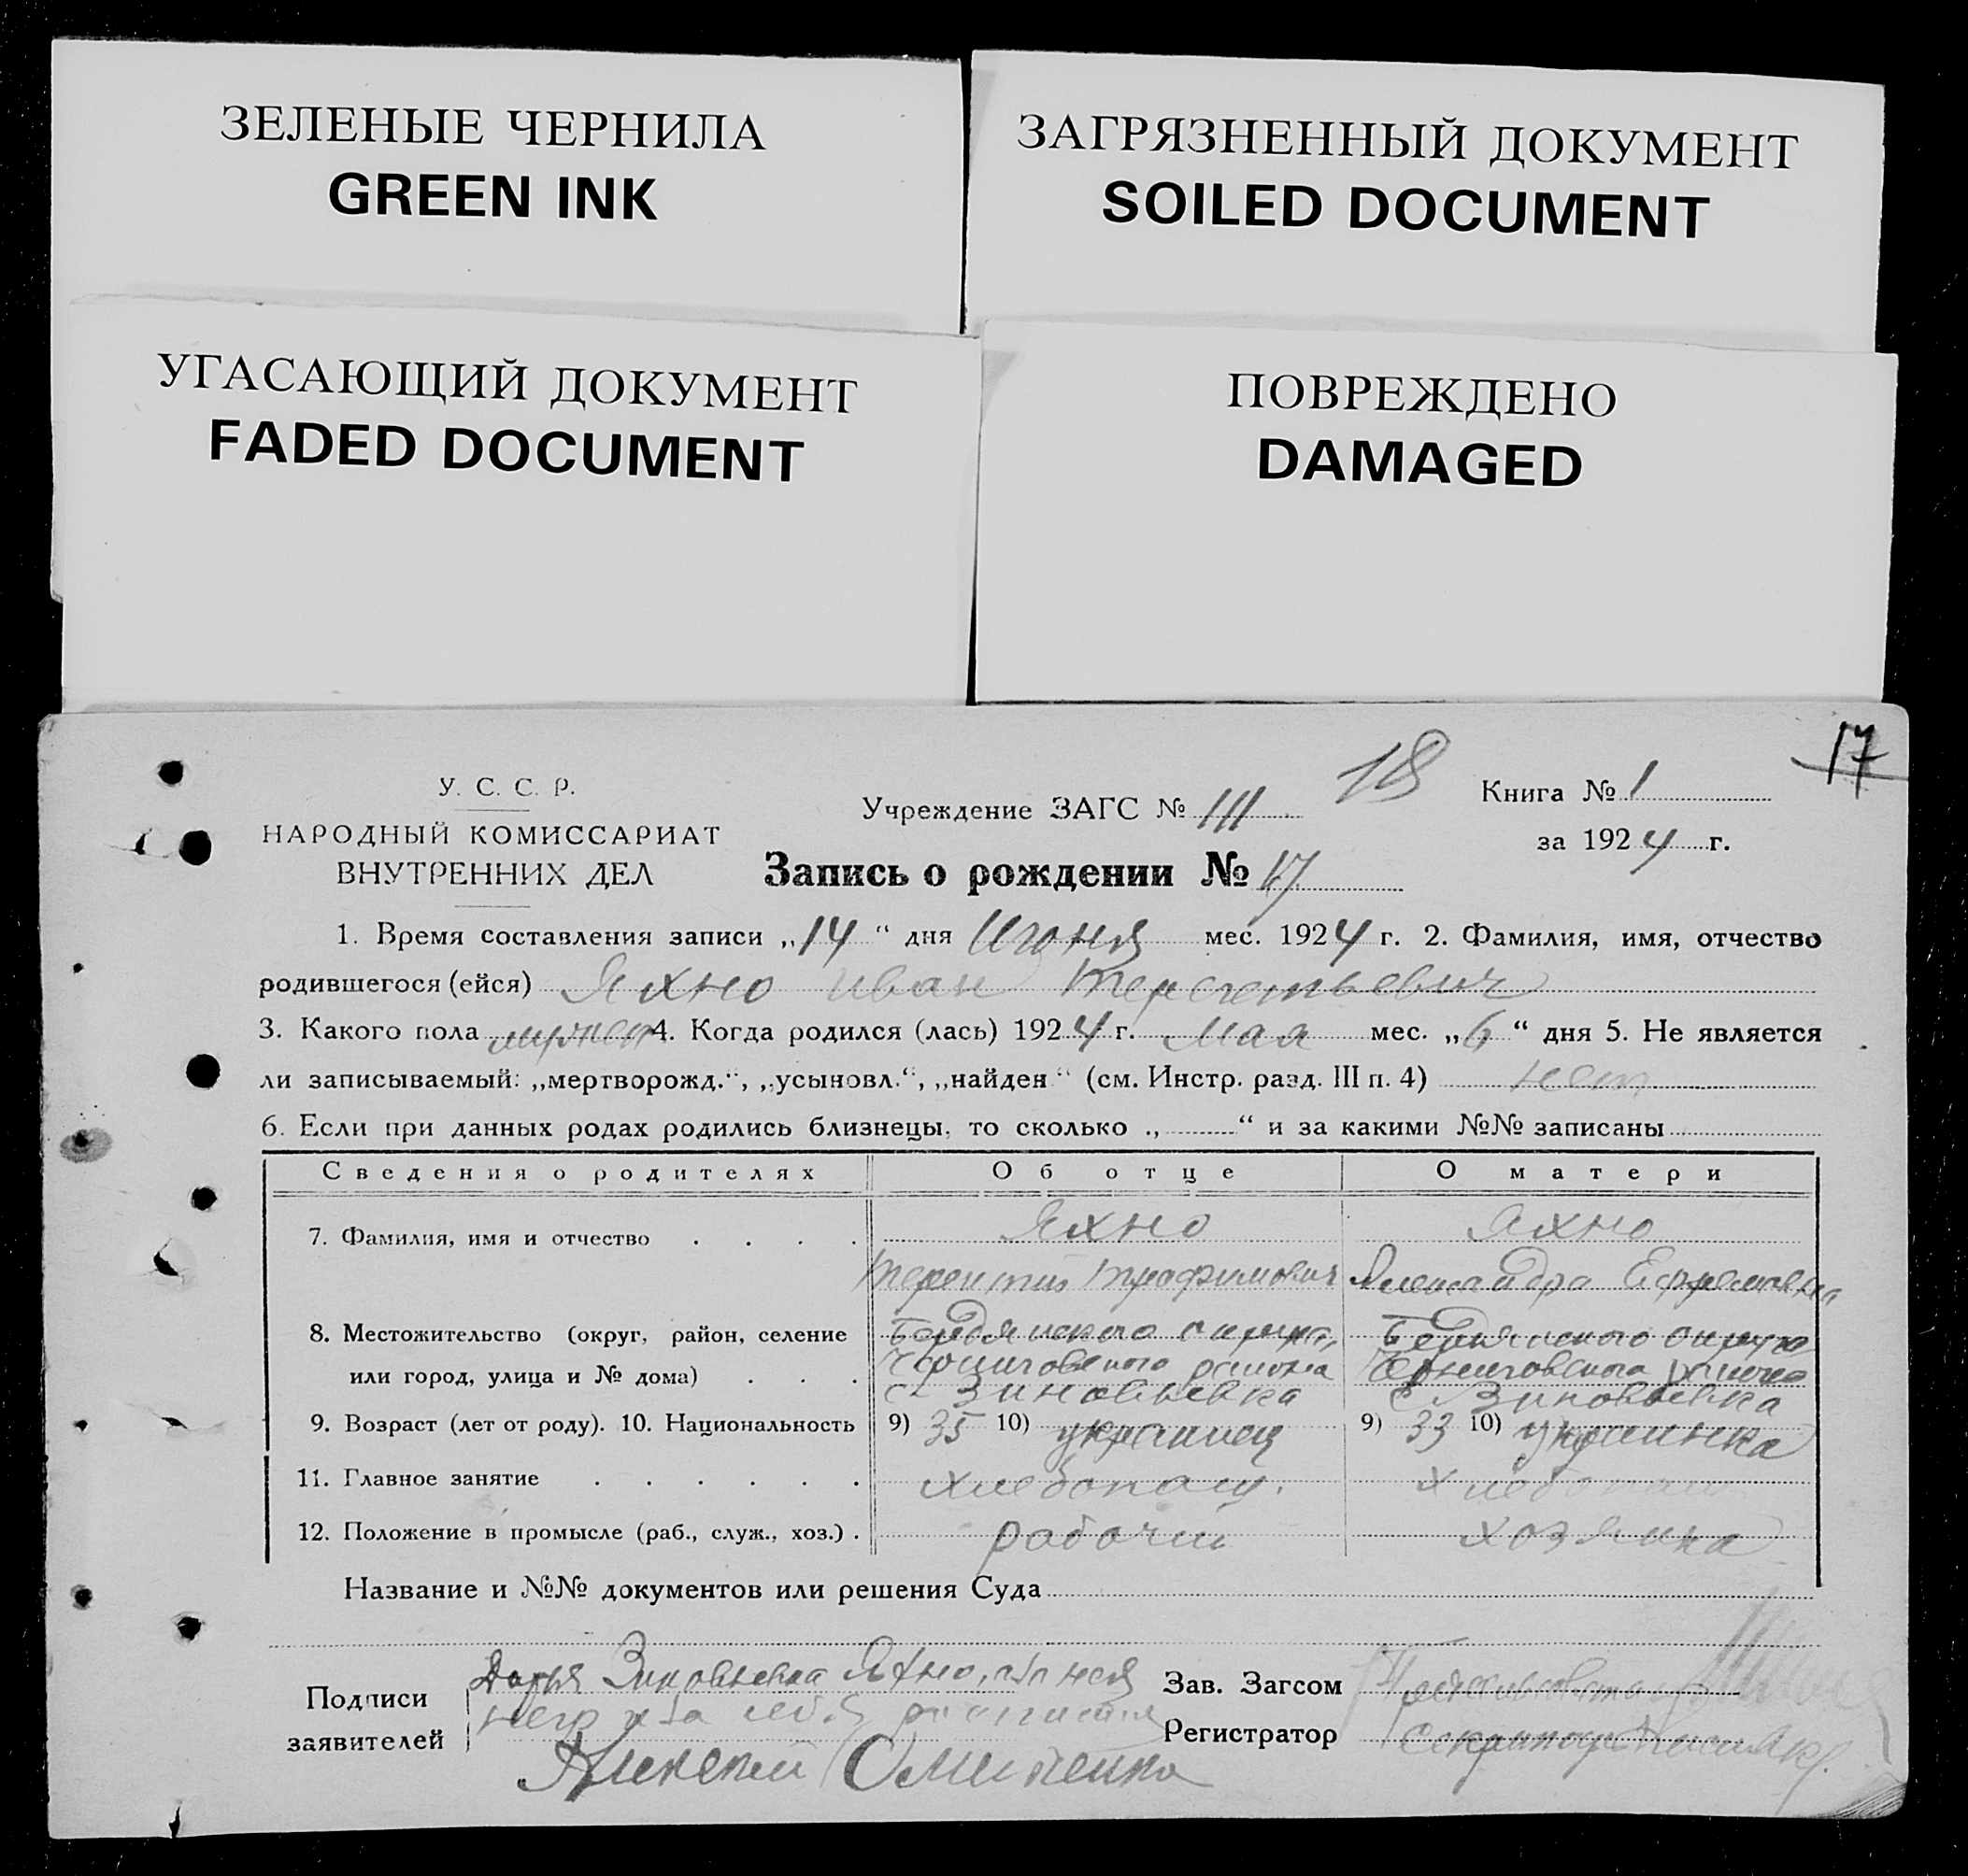 ЗЕЛЕНЫЕ ЧЕРНИЛА
GREEN INK
ЗАГРЯЗНЕННЫЙ ДОКУМЕНТ
SOILED DOCUMENT
УГАСАЮЩИЙ ДОКУМЕНТ
FADED DOCUMENT
ПОВРЕЖДЕНО
DAMAGED
17
18
У. С. С. Р.
НАРОДНЫЙ КОМИССАРИАТ
ВНУТРЕННИХ ДЕЛ
Учреждение ЗАГС № III
Книга № 1
за 1924 г.
Запись о рождении № 17
1. Время составления записи „14“ дня Июня мес. 1924 г. 2. Фамилия, имя, отчество
родившегося (ейся) Яхно Иван Терентьевич
3. Какого пола мужск 4. Когда родился (лась) 1924 г. Мая мес. „6“ дня 5. Не является
ли записываемый: „мертворожд.“, „усыновл.“, „найден“ (см. Инстр. разд. III п. 4) нет
6. Если при данных родах родились близнецы, то сколько „ “ и за какими №№ записаны
Сведения о родителях Об отце О матери
7. Фамилия, имя и отчество Яхно Яхно
Терентий Трофимович Александра Ефремовна
8. Местожительство (округ, район, селение Бердянского округа, Бердянского округа
или город, улица и № дома) Черниговского района Черниговского района
с Зиновьевка с Зиновьевка
9. Возраст (лет от роду). 10. Национальность 9) 35 10) украинец 9) 33 10) украинка
11. Главное занятие хлебопаш. хлебопаш
12. Положение в промысле (раб., служ., хоз.) рабочий хозяйка
Название и №№ документов или решения Суда
Подписи
заявителей
Дарья Зиновьевна Яхно, а за нея
негр и за себя
Алексей Омельченко
Зав. Загсом
Регистратор